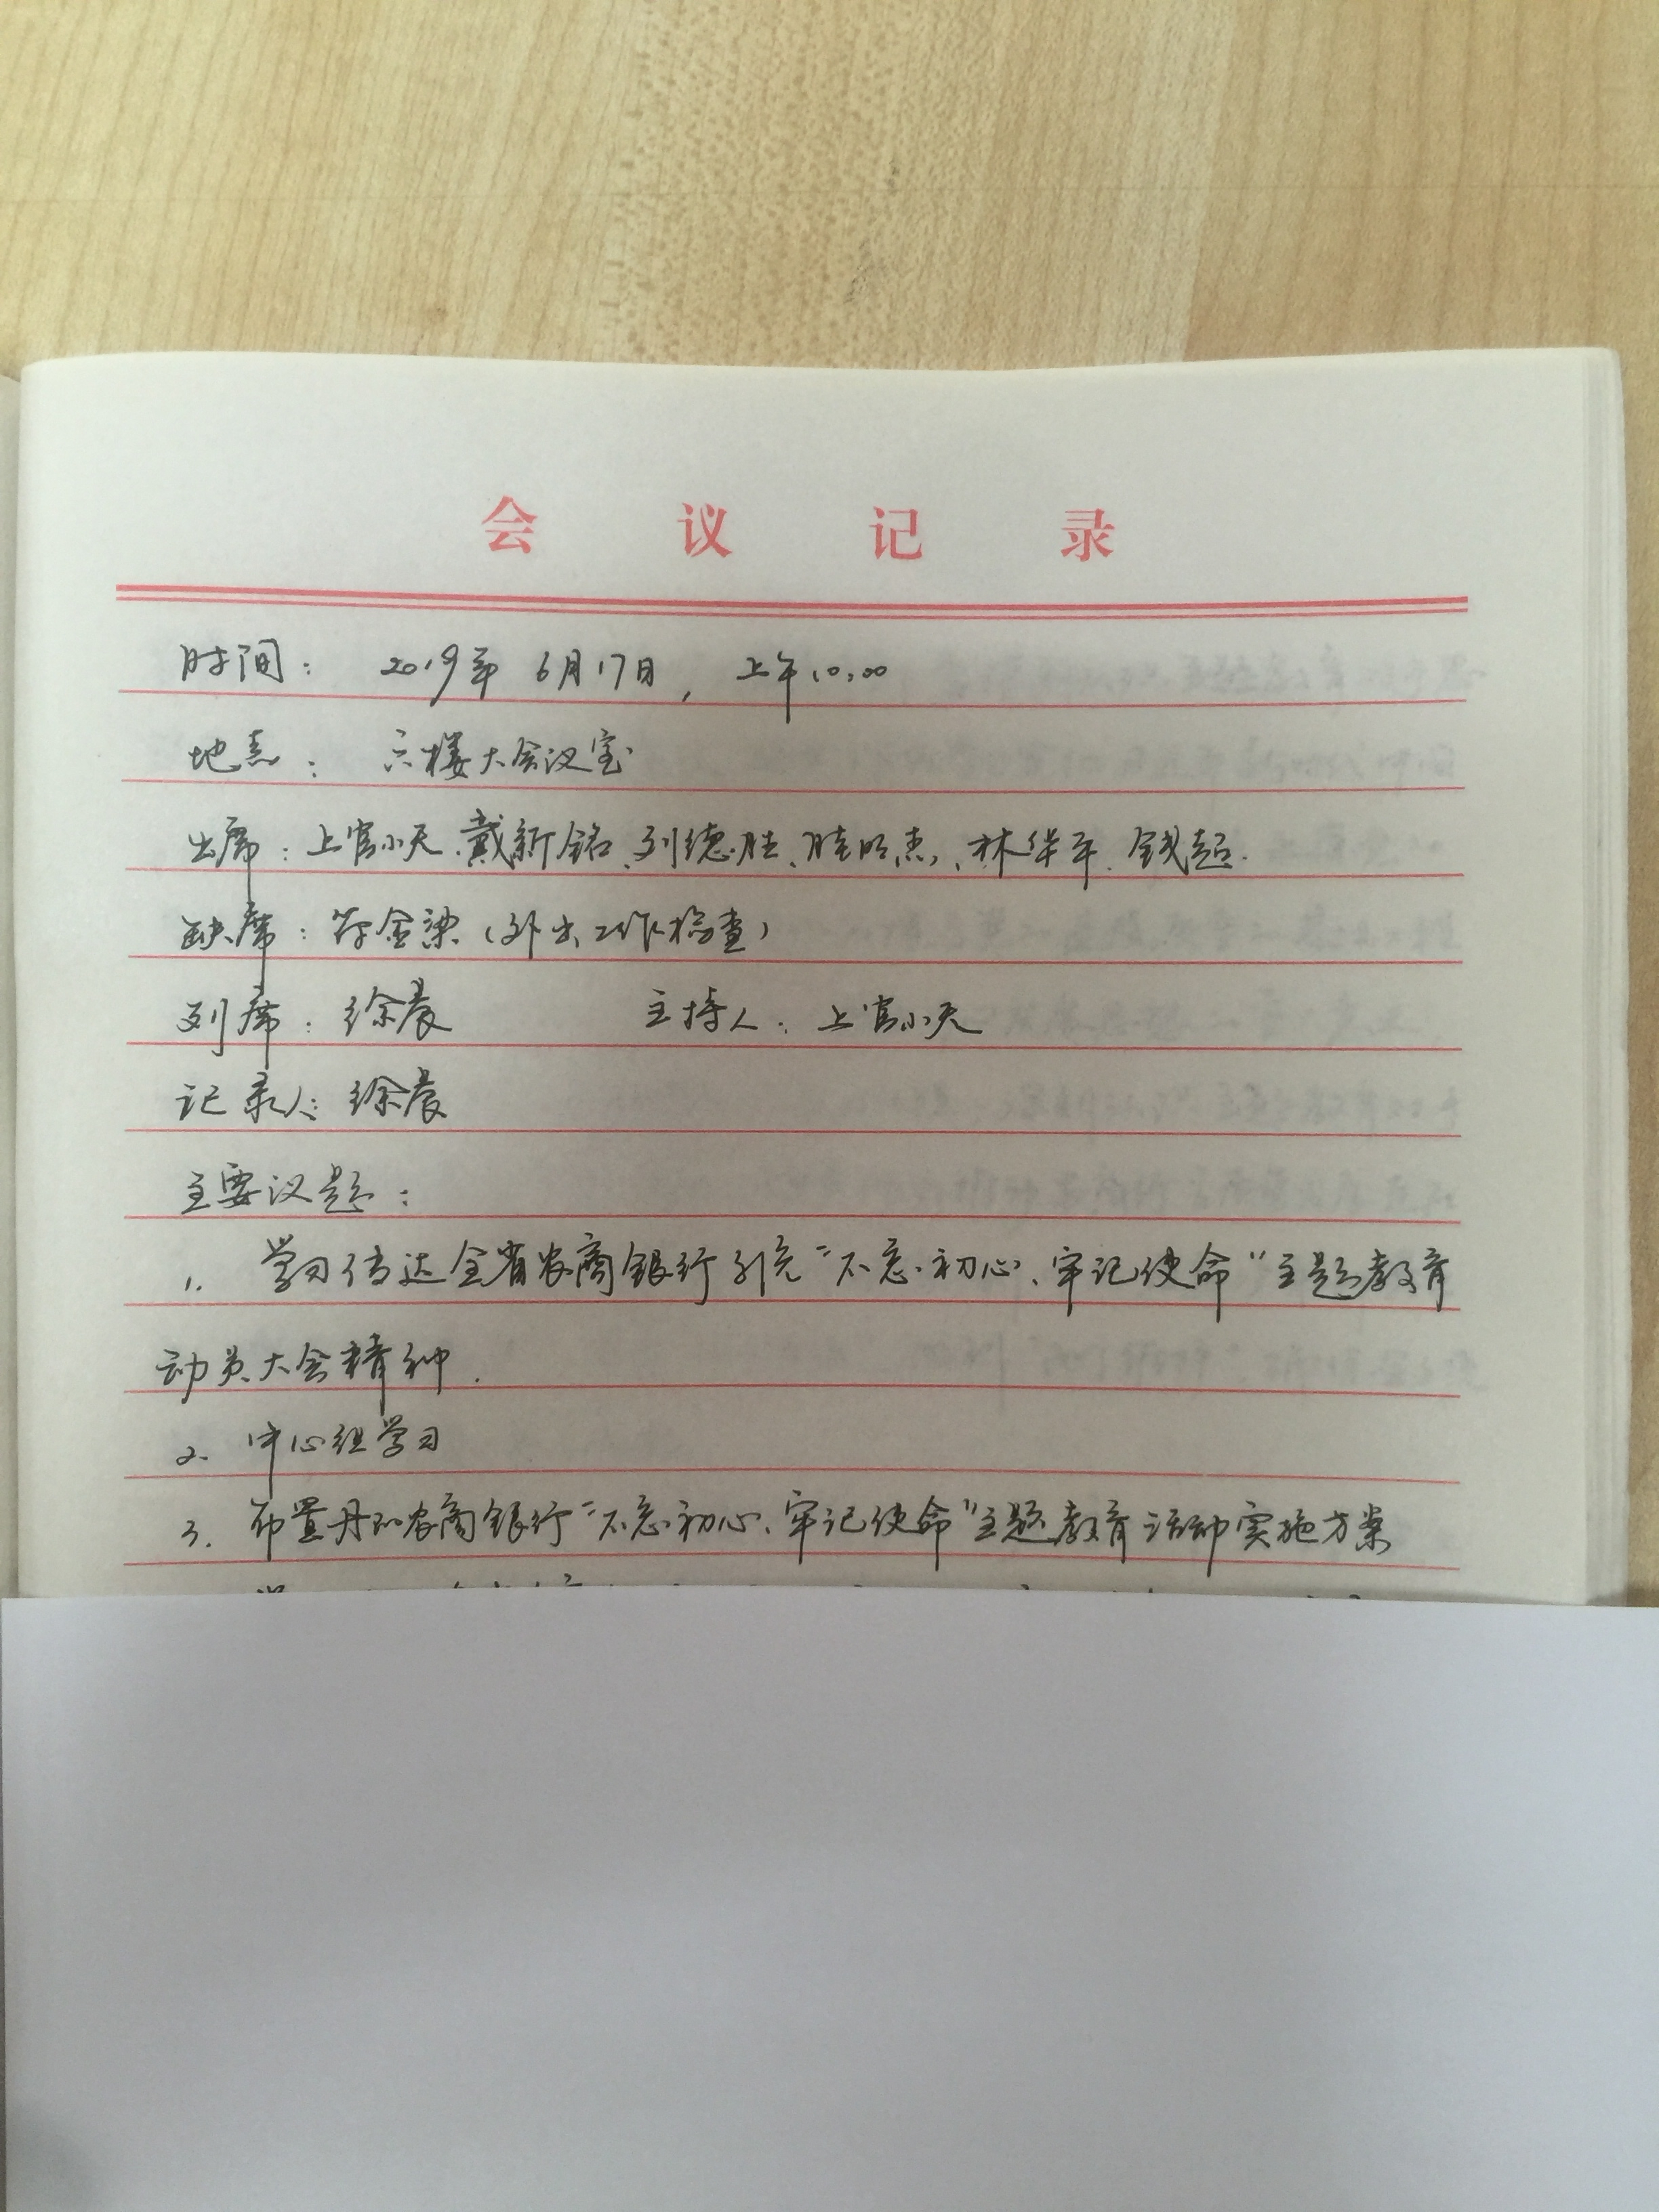 会议记录
时间： 2019年 6月17日，上午10:00
地点： 六楼大会议室
出席：上官小天、戴新铭、列德胜、眭明杰、林华平、钱超.
缺席：符金梁（外出工作检查）
列席：徐晨 主持人：上官小天
记录人：徐晨
主要议题：
1. 学习传达全省农商银行系统“不忘初心、牢记使命”主题教育
动员大会精神.
2. 中心组学习
3. 布置丹阳农商银行“不忘初心、牢记使命”主题教育活动实施方案